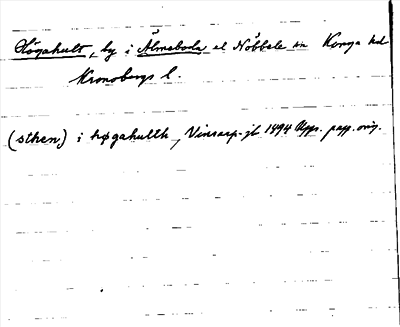 Högahult, by i Älmeboda el Nöbbele sn Konga hd
Kronobergs l.
(sthen) i høgahulth, Vinsarp-jb 1494 Upps. papp. orig.